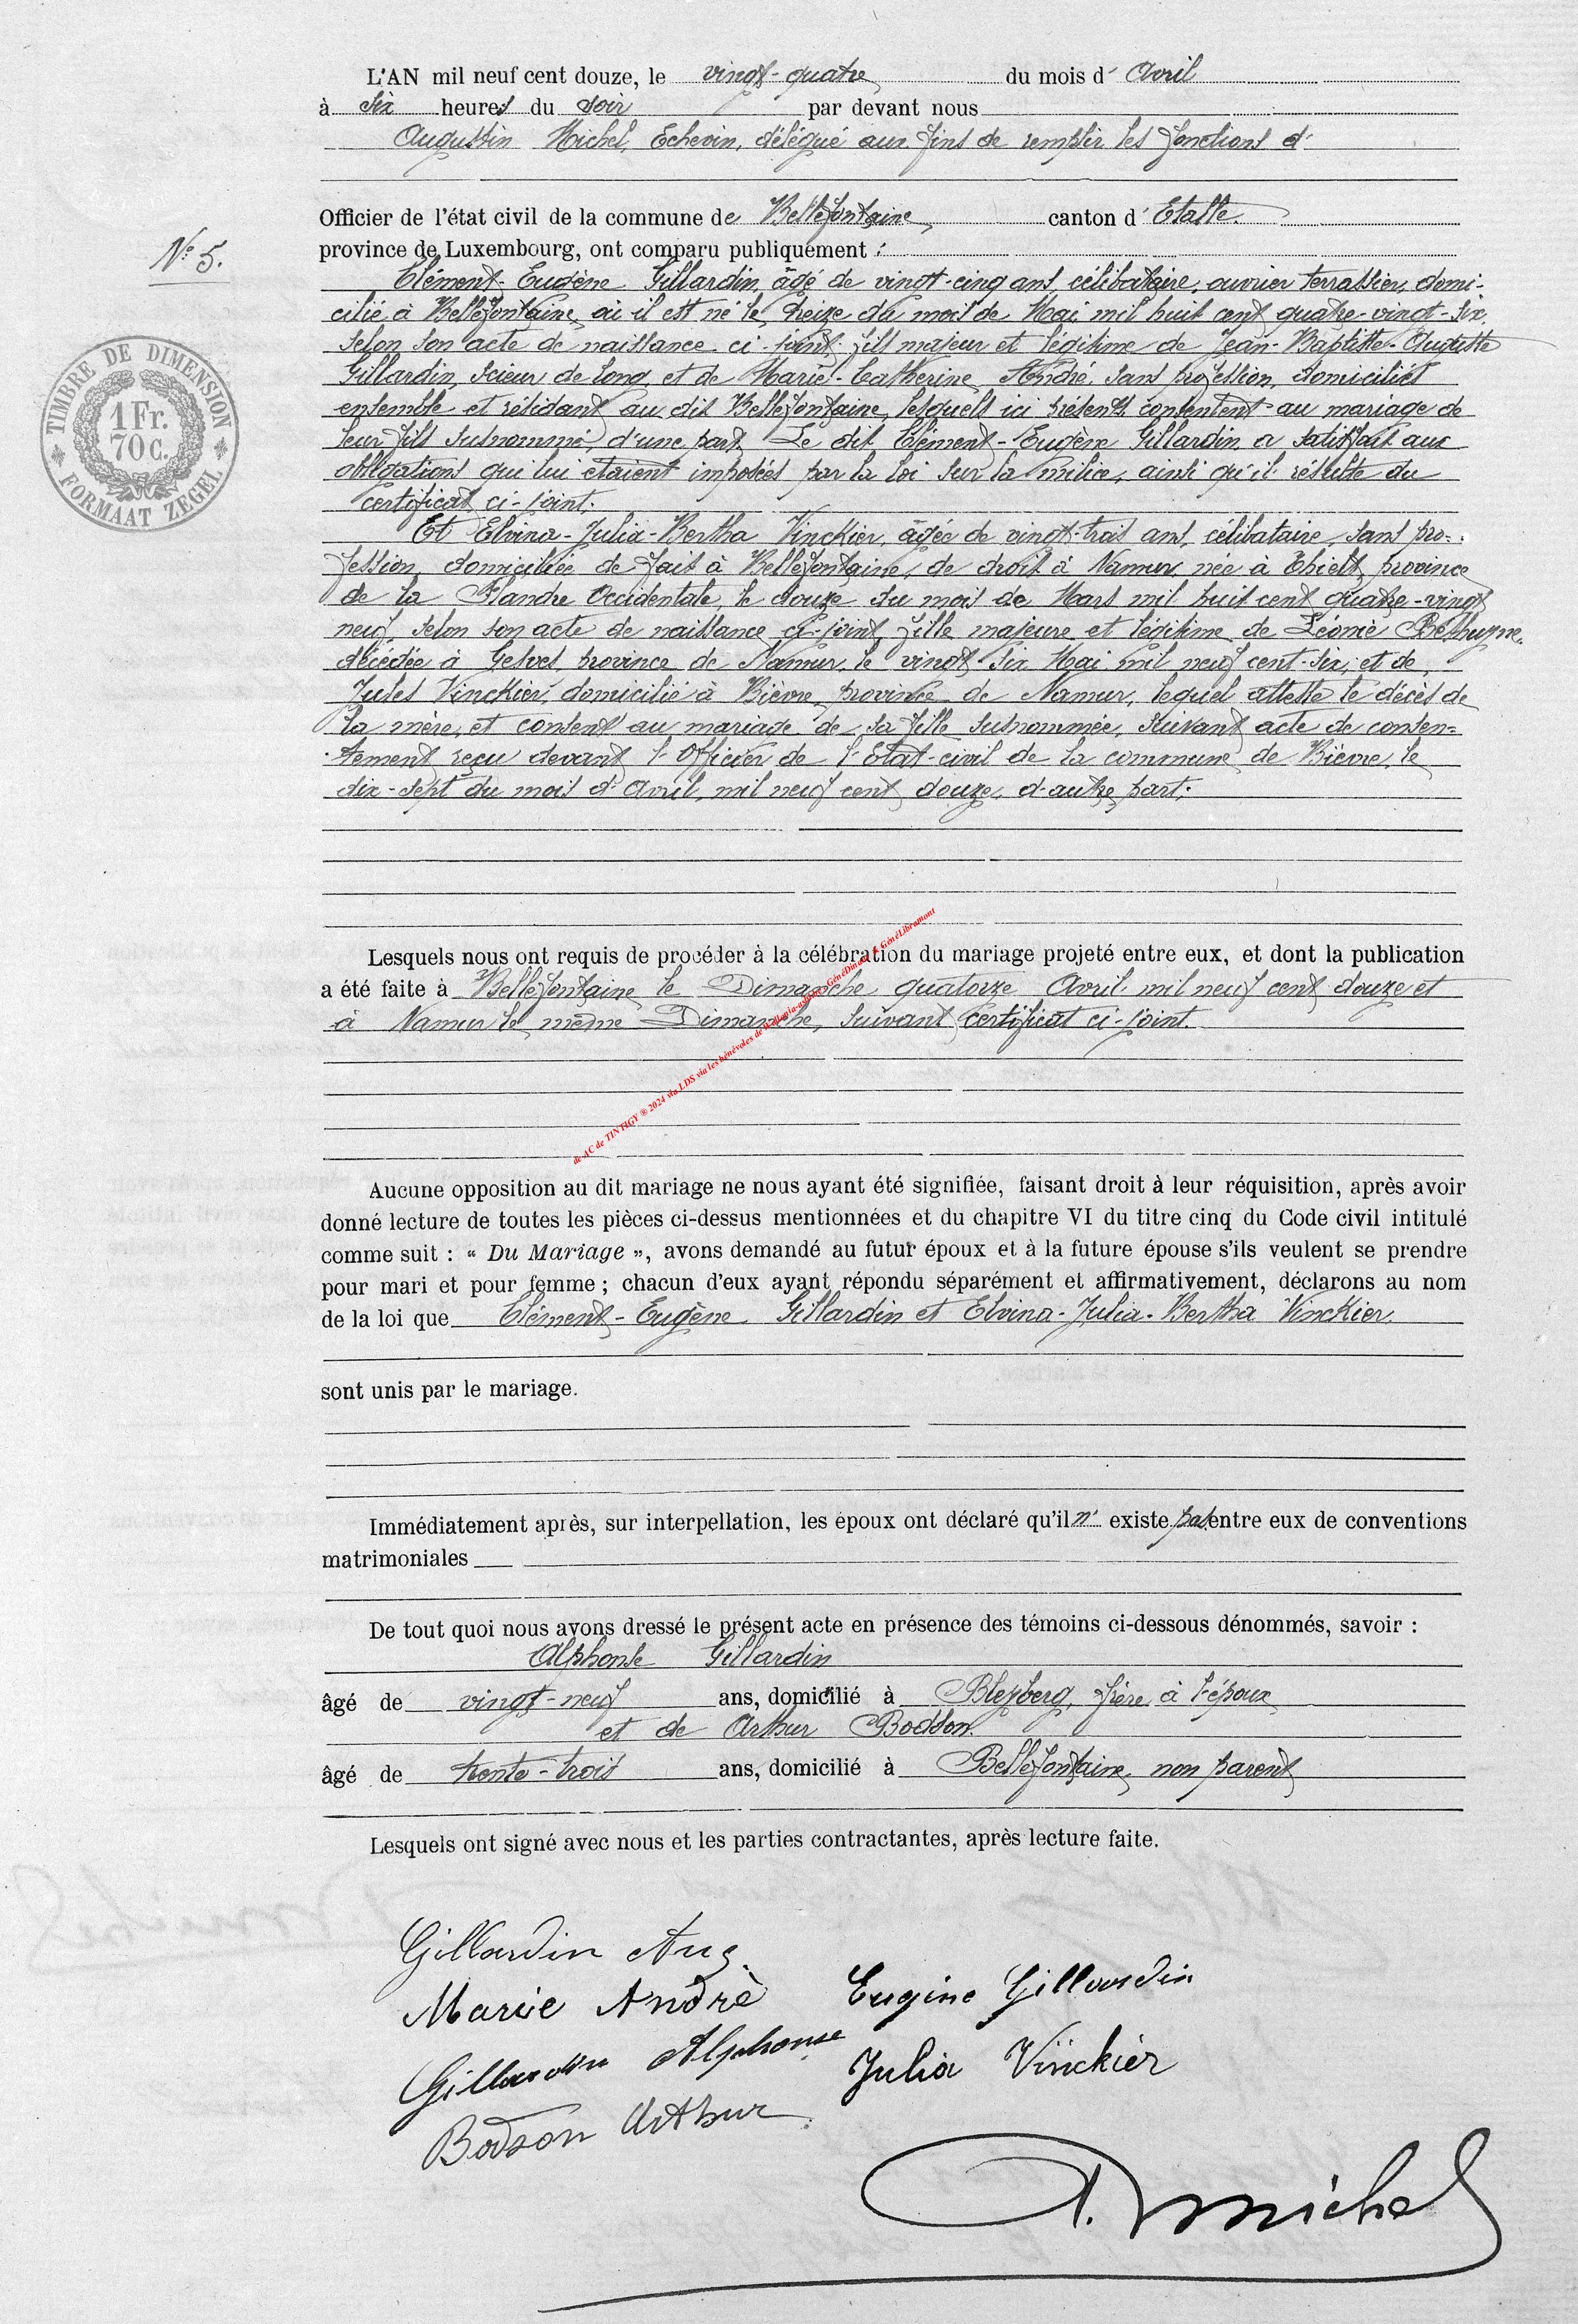 L'AN mil neuf cent douze, le vingt-quatre du mois d' Avril
à six heures du soir par devant nous
Augustin Michel, Echevin, délégué aux fins de remplir les fonctions d'
Officier de l'état civil de la commune de Bellefontaine, canton d' Etalle.
N° 5.
province de Luxembourg, ont comparu publiquement :
Clément-Eugène Gillardin, âgé de vingt-cinq ans, célibataire, ouvrier terrassier, domi-
cilié à Bellefontaine, où il est né le treize du mois de Mai mil huit cent quatre-vingt-six,
selon son acte de naissance ci-joint, fils majeur et légitime de Jean-Baptiste-Auguste
Gillardin, scieur de long, et de Marie-Catherine André, sans profession, domiciliés
ensemble et résidant au dit Bellefontaine, lesquels ici présents consentent au mariage de
leur fils susnommé, d'une part. Le dit Clément-Eugène Gillardin a satisfait aux
obligations qui lui étaient imposées par la loi sur la milice, ainsi qu'il résulte du
certificat ci-joint.
Et Elvina-Julia-Bertha Vinckier, âgée de vingt-trois ans, célibataire, sans pro-
fession, domiciliée de fait à Bellefontaine, de droit à Namur, née à Thielt, province
de la Flandre Occidentale, le douze du mois de Mars mil huit cent quatre-vingt
neuf, selon son acte de naissance ci-joint, fille majeure et légitime de Léonie Béthuyne,
décédée à Gesves, province de Namur, le vingt six Mai mil neuf cent-six, et de
Jules Vinckier, domicilié à Bièvre, province de Namur, lequel atteste le décès de
la mère, et consent au mariage de sa fille susnommée, suivant acte de consen=
tement reçu devant l'Officier de l'Etat-civil de la commune de Bièvre, le
dix-sept du mois d'Avril, mil neuf cent douze, d'autre part.
Lesquels nous ont requis de procéder à la célébration du mariage projeté entre eux, et dont la publication
a été faite à Bellefontaine le Dimanche quatorze Avril mil neuf cent douze et
à Namur le même Dimanche, suivant certificat ci-joint.
de AC de TINTIGY ® 2024 via LDS via les bénévoles de GénéDinant & GénéLibramont
Aucune opposition au dit mariage ne nous ayant été signifiée, faisant droit à leur réquisition, après avoir
donné lecture de toutes les pièces ci-dessus mentionnées et du chapitre VI du titre cinq du Code civil intitulé
comme suit : « Du Mariage », avons demandé au futur époux et à la future épouse s'ils veulent se prendre
pour mari et pour femme ; chacun d'eux ayant répondu séparément et affirmativement, déclarons au nom
de la loi que Clément-Eugène Gillardin et Elvina-Julia-Bertha Vinckier
sont unis par le mariage.
Immédiatement après, sur interpellation, les époux ont déclaré qu'il n' existe pas entre eux de conventions
matrimoniales
De tout quoi nous avons dressé le présent acte en présence des témoins ci-dessous dénommés, savoir :
Alphonse Gillardin
âgé de vingt-neuf ans, domicilié à Bleyberg, frère à l'époux
et de Arthur Bodson.
âgé de trente-trois ans, domicilié à Bellefontaine, non parent
Lesquels ont signé avec nous et les parties contractantes, après lecture faite.
Gillardin Aug.
Marie André Eugène Gillardin
Gillardin Alphonse Julia Vinckier
Bodson Arthur
A. Michel
TIMBRE DE DIMENSION
1 Fr.
70 C.
FORMAAT ZEGEL